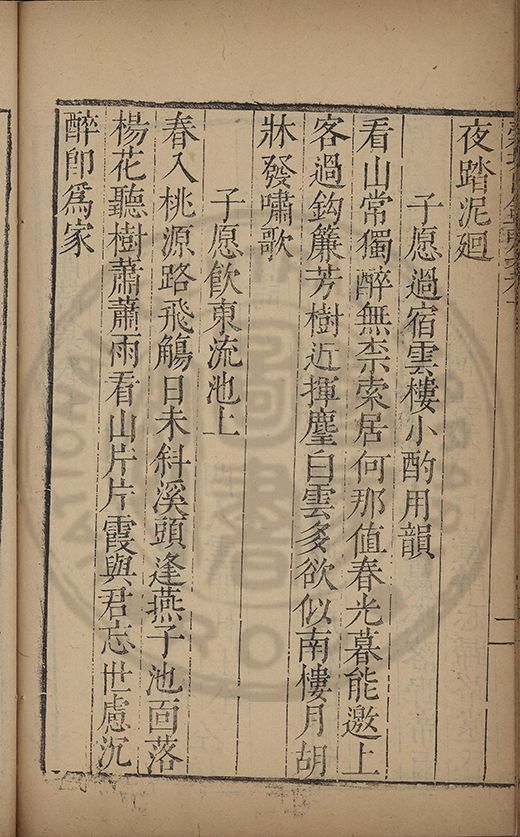 夜踏泥廻
子愿過宿雲樓小酌用韻
看山常獨醉無柰索居何那值春光暮能邀上
客過鈎簾芳樹近揮麈白雲多欲似南樓月胡
牀發嘯歌
子愿飲東流池上
春入桃源路飛觴日未斜溪頭逢燕子池面落
楊花聽樹蕭蕭雨看山片片霞與君忘世慮沉
醉卽爲家